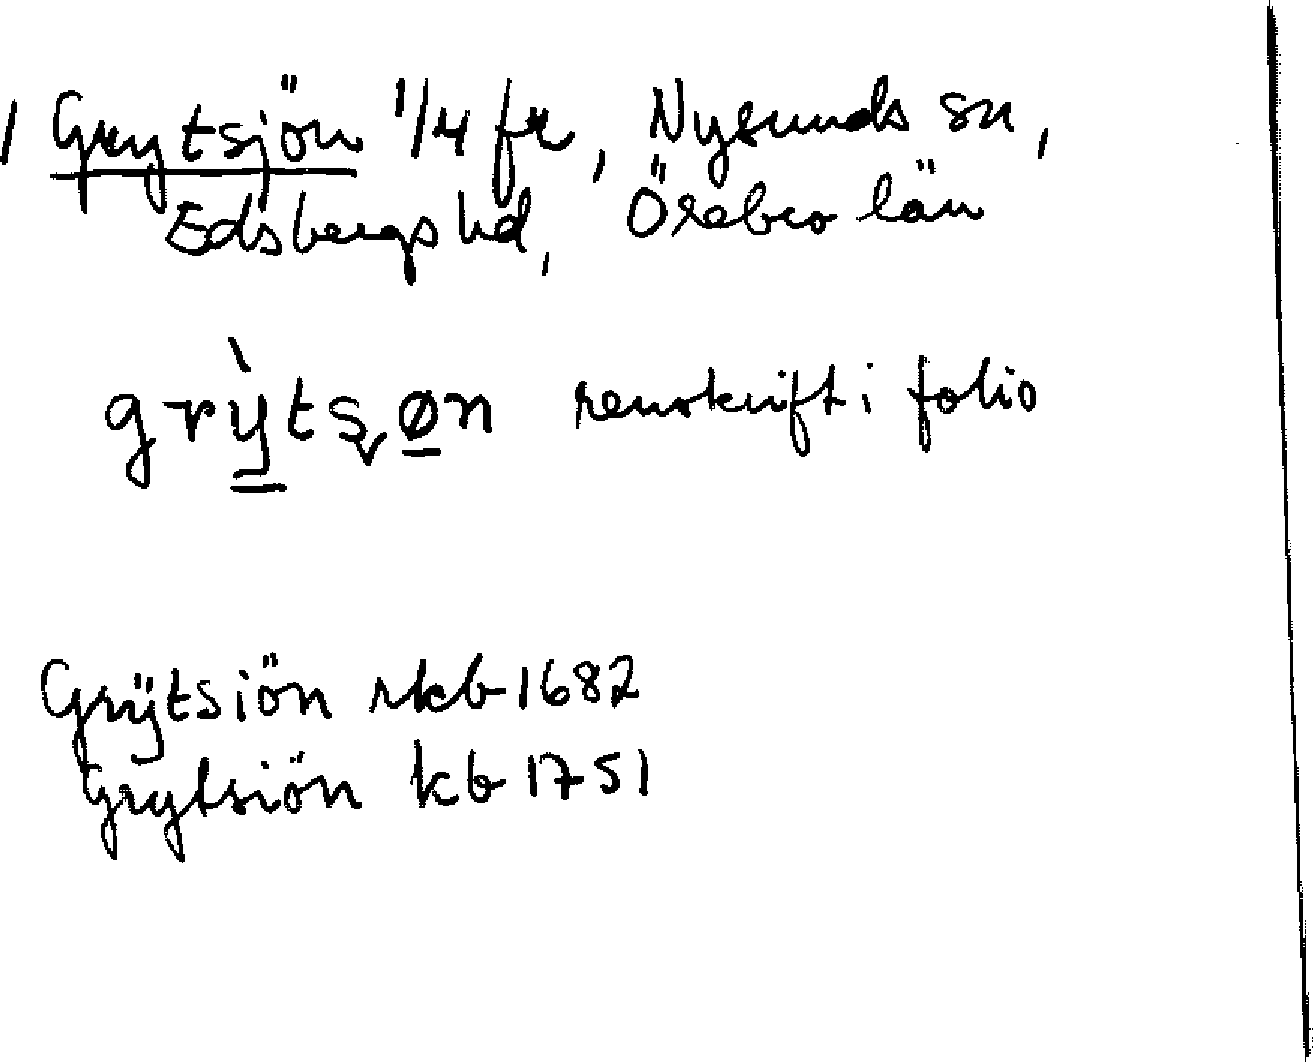 1 Grytsjön 1/4 fr, Nysunds sn,
Edsbergs hd, Örebro län
grỳtsøn renskrift i folio
Grÿtsiön rkb 1682
Grytsiön kb 1751